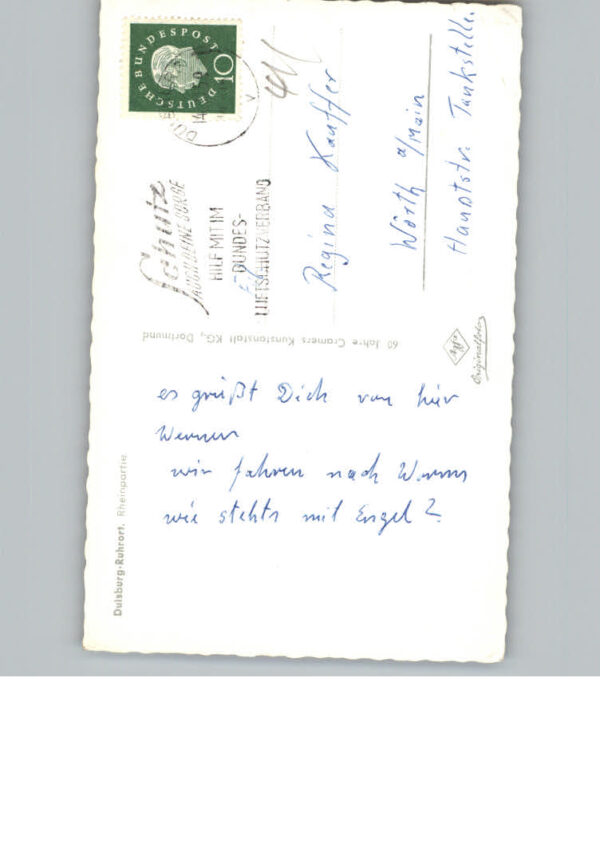 DEUTSCHE BUNDESPOST
10
Schutz
AUCH DEINE SORGE
HILF MIT IM
BUNDES-
LUFTSCHUTZVERBAND
Regina Kauffer
Wörth a/Main
Hauptstr. Tankstelle.
60 Jahre Cramers Kunstanstalt KG., Dortmund
Agfa
Originalfoto
es grüßt Dich von hier
Werner
wir fahren nach Worms
wie stehts mit Engel?
Duisburg-Ruhrort. Rheinpartie